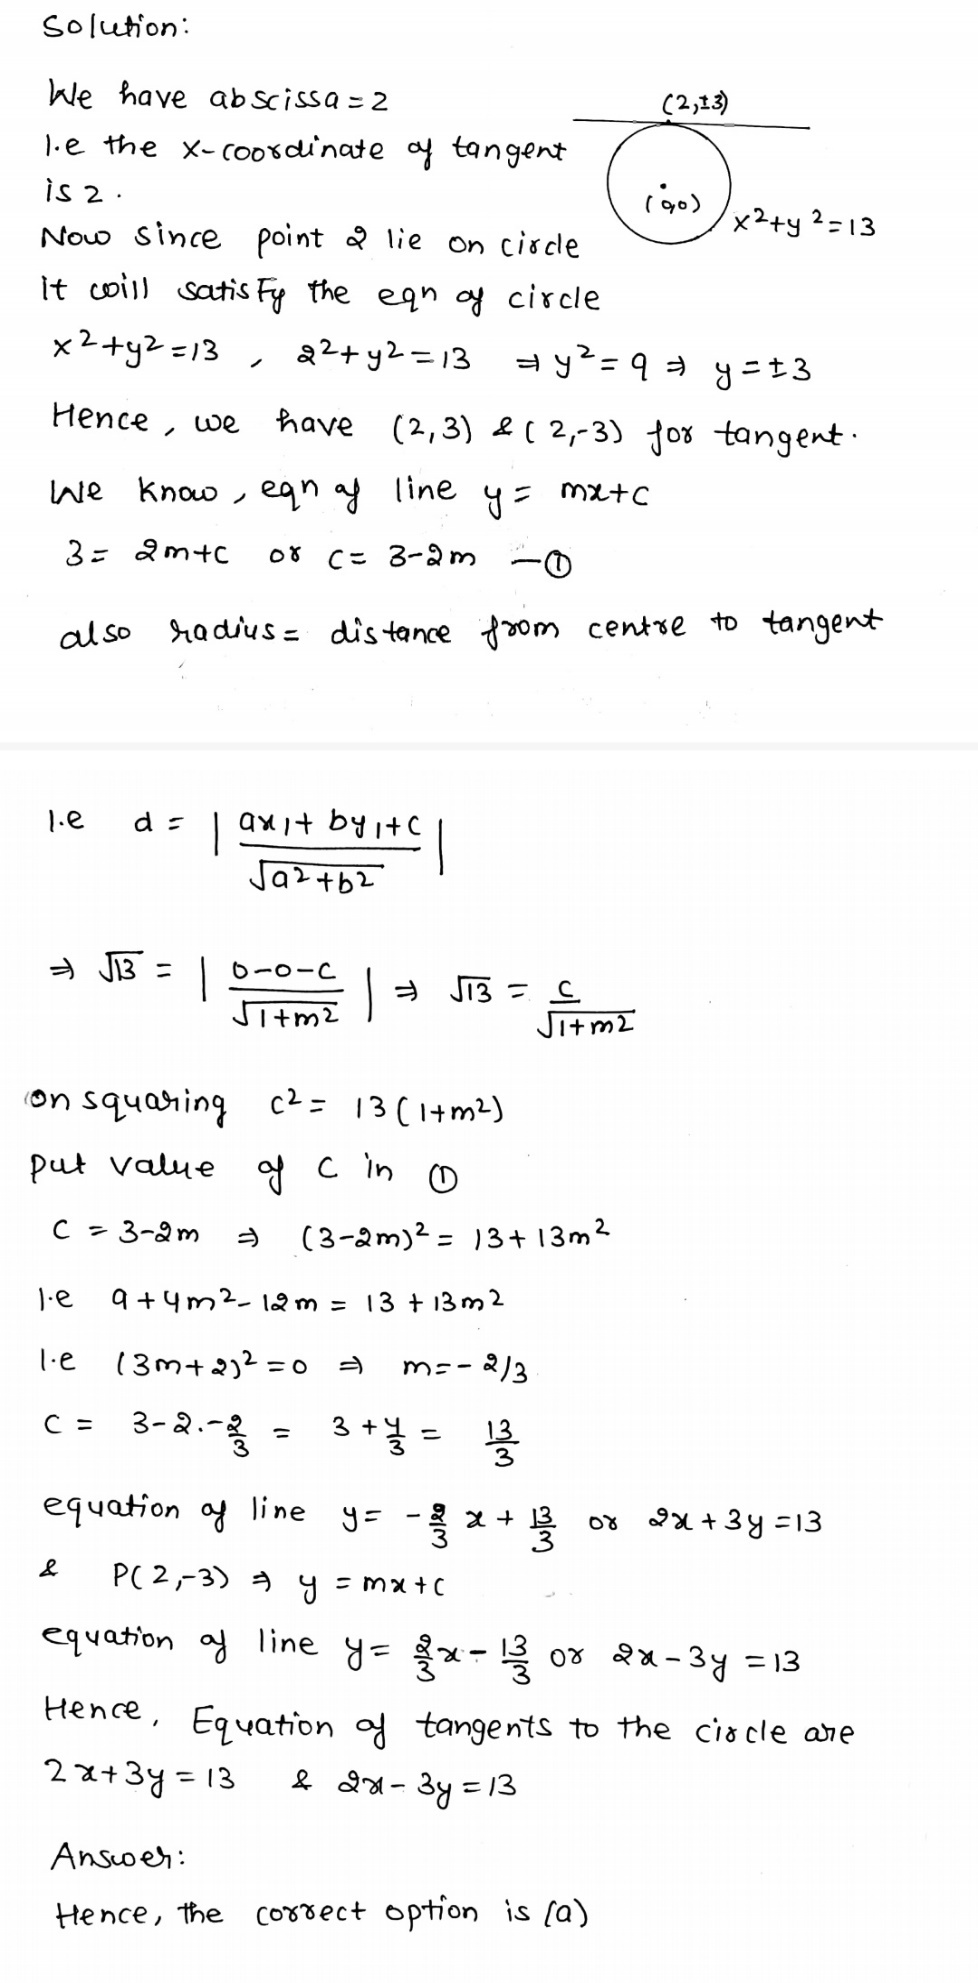 Solution:
We have abscissa = 2
(2,±3)
I.e the x-coordinate of tangent
is 2.
(0,0)
x²+y²=13
Now since point 2 lie on circle
it will satisfy the eqn of circle
x²+y²=13 , 2²+y²=13 ⇒ y²=9 ⇒ y=±3
Hence, we have (2,3) & (2,-3) for tangent.
We know, eqn of line y = mx+c
3 = 2m+c or c = 3-2m —①
also radius = distance from centre to tangent
I.e d = | (ax₁+by₁+c)/√(a²+b²) |
⇒ √13 = | (0-0-c)/√(1+m²) | ⇒ √13 = c/√(1+m²)
on squaring c² = 13(1+m²)
put value of c in ①
c = 3-2m ⇒ (3-2m)² = 13+13m²
I.e 9+4m²-12m = 13+13m²
I.e (3m+2)²=0 ⇒ m=-2/3
c = 3-2.-2/3 = 3+4/3 = 13/3
equation of line y = -2/3 x + 13/3 or 2x+3y=13
& P(2,-3) ⇒ y = mx+c
equation of line y = 2/3 x - 13/3 or 2x-3y=13
Hence, Equation of tangents to the circle are
2x+3y=13 & 2x-3y=13
Answer:
Hence, the correct option is (a)